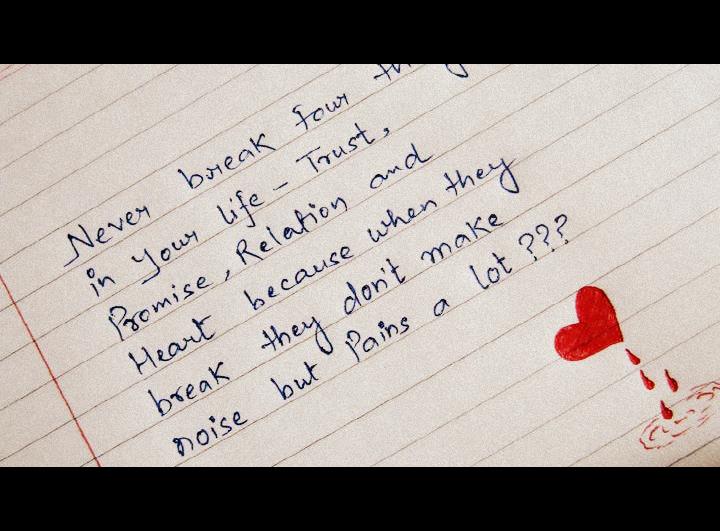 Never break four
in your life - Trust,
Promise, Relation and
Heart because when they
break they don't make
noise but Pains a lot ???